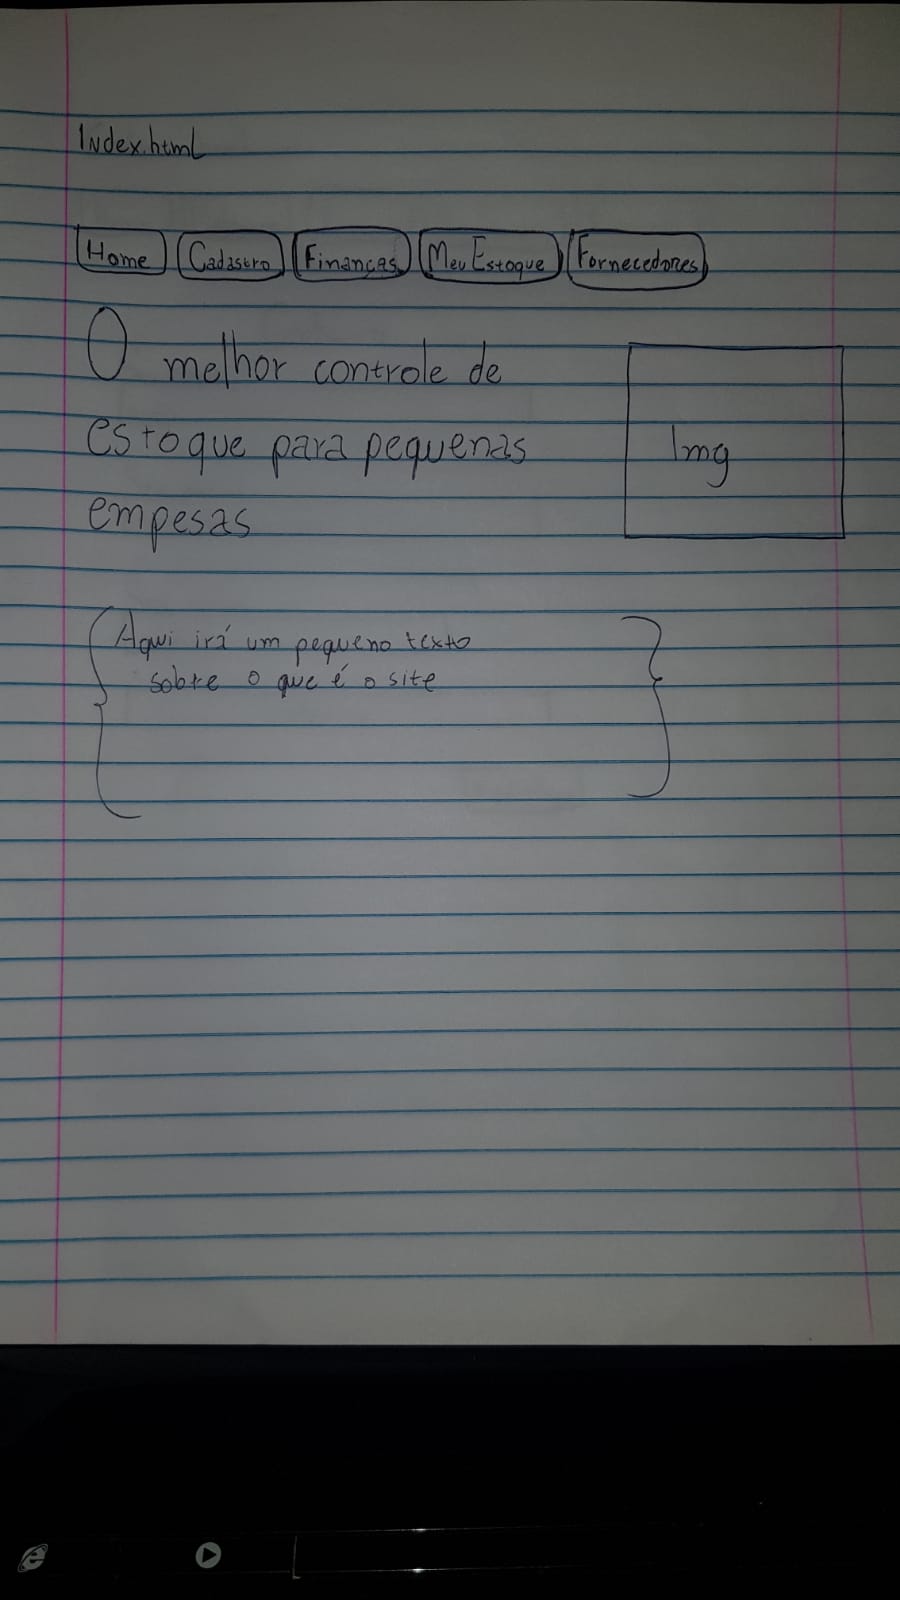 Index.html
Home Cadastro Finanças Meu Estoque Fornecedores
O melhor controle de
estoque para pequenas
empesas
Img
Aqui irá um pequeno texto
sobre o que é o site